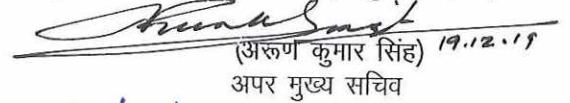 (अरूण कुमार सिंह) 19.12.19
अपर मुख्य सचिव